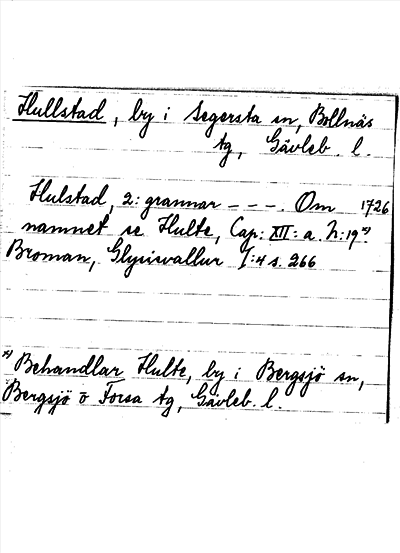 Hullstad, by i Segersta sn, Bollnäs
tg, Gävleb. l.
Hulstad, 2: grannar – – –. Om 1726
namnet se Hulte, Cap: XII: a. N: 19 *)
Broman, Glysisvallur I: 4 s. 266
*) Behandlar Hulte, by i Bergsjö sn,
Bergsjö o Forsa tg, Gävleb. l.